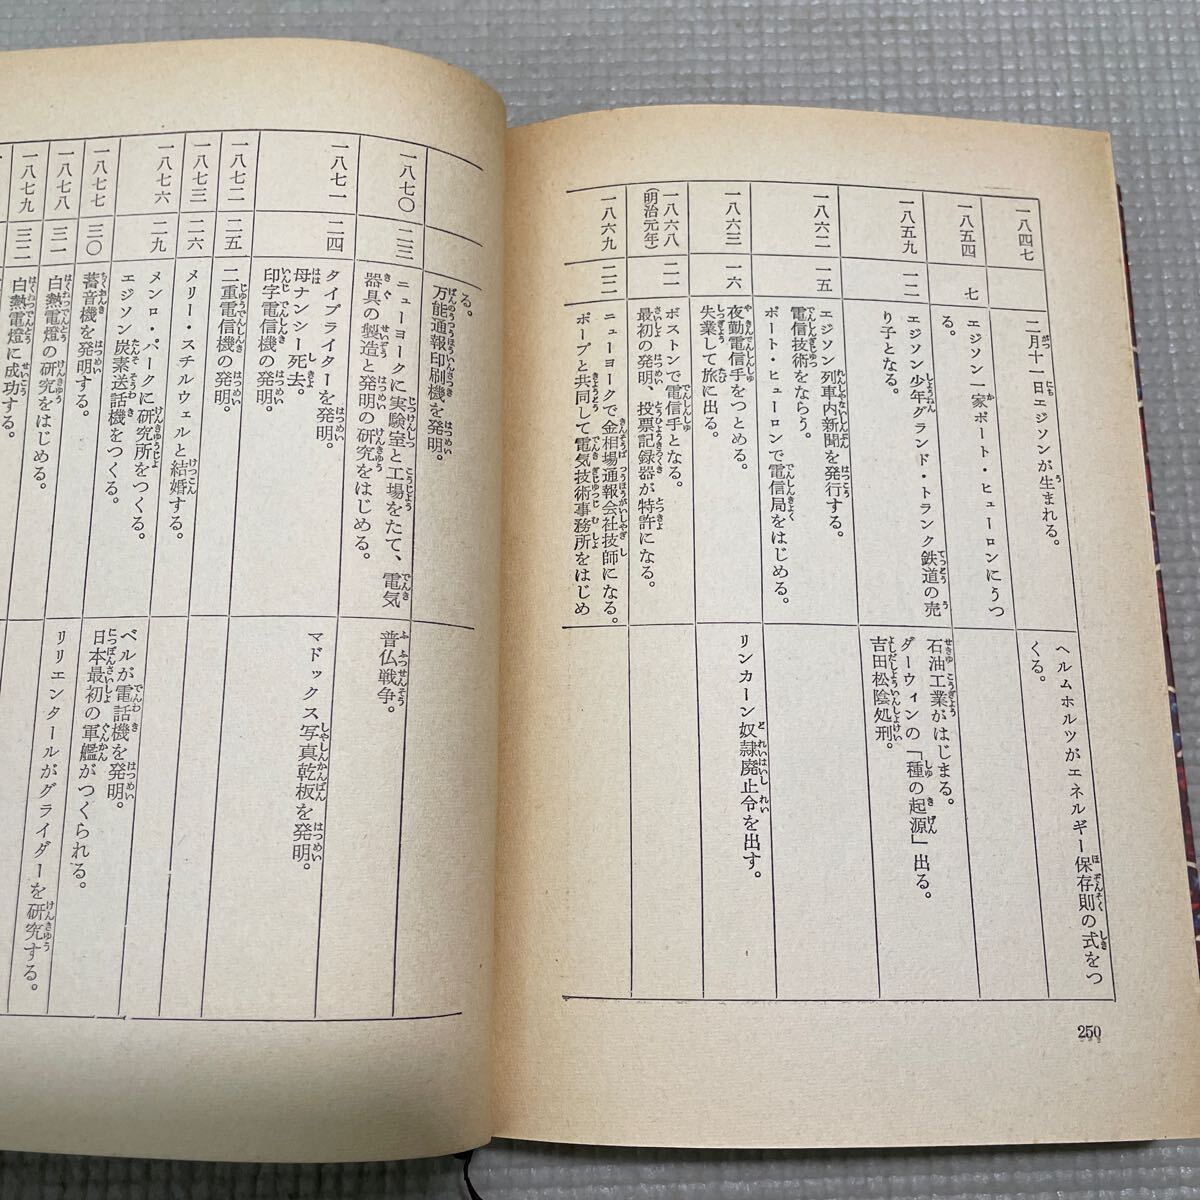 一八四七
二月十一日エジソンが生まれる。
ヘルムホルツがエネルギー保存則の式をつ
くる。
一八五四
七
エジソン一家ポート・ヒューロンにうつ
る。
一八五九
一二
エジソン少年グランド・トランク鉄道の売
り子となる。
石油工業がはじまる。
ダーウィンの「種の起源」出る。
吉田松陰処刑。
一八六二
一五
エジソン列車内新聞を発行する。
電信技術をならう。
ポート・ヒューロンで電信局をはじめる。
一八六三
一六
夜勤電信手をつとめる。
失業して旅に出る。
リンカーン奴隷廃止令を出す。
一八六八
(明治元年)
二一
ボストンで電信手となる。
最初の発明、投票記録器が特許になる。
一八六九
二二
ニューヨークで金相場通報会社技師になる。
ポープと共同して電気技術事務所をはじめ
250
る。
万能通報印刷機を発明。
一八七〇
二三
ニューヨークに実験室と工場をたて、電気
器具の製造と発明の研究をはじめる。
普仏戦争。
一八七一
二四
タイプライターを発明。
母ナンシー死去。
印字電信機の発明。
マドックス写真乾板を発明。
一八七二
二五
二重電信機の発明。
一八七三
二六
メリー・スチルウェルと結婚する。
一八七六
二九
メンロ・パークに研究所をつくる。
エジソン炭素送話機をつくる。
ベルが電話機を発明。
日本最初の軍艦がつくられる。
一八七七
三〇
蓄音機を発明する。
一八七八
三一
白熱電燈の研究をはじめる。
リリエンタールがグライダーを研究する。
一八七九
三二
白熱電燈に成功する。